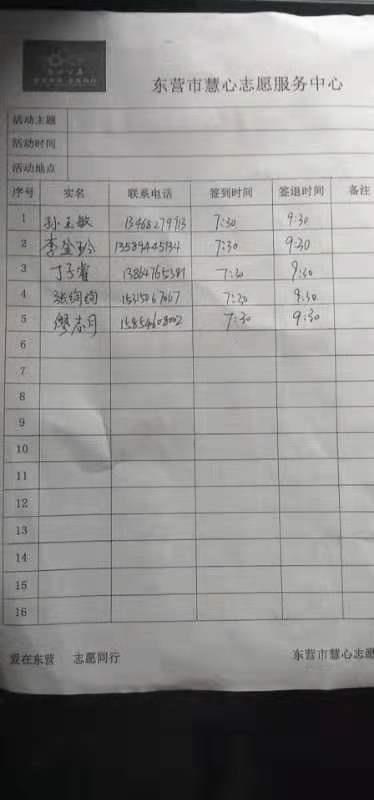 东营市慧心志愿服务中心
活动主题
活动时间
活动地点
序号 实名 联系电话 签到时间 签退时间 备注
1 孙玉敏 13468279713 7:30 9:30
2 李金玲 13589445134 7:30 9:30
3 丁子睿 13864765381 7:30 9:30
4 张绚绚 7:30 9:30
5 志月 15854608002 7:30 9:30
6
7
8
9
10
11
12
13
14
15
16
爱在东营 志愿同行 东营市慧心志愿